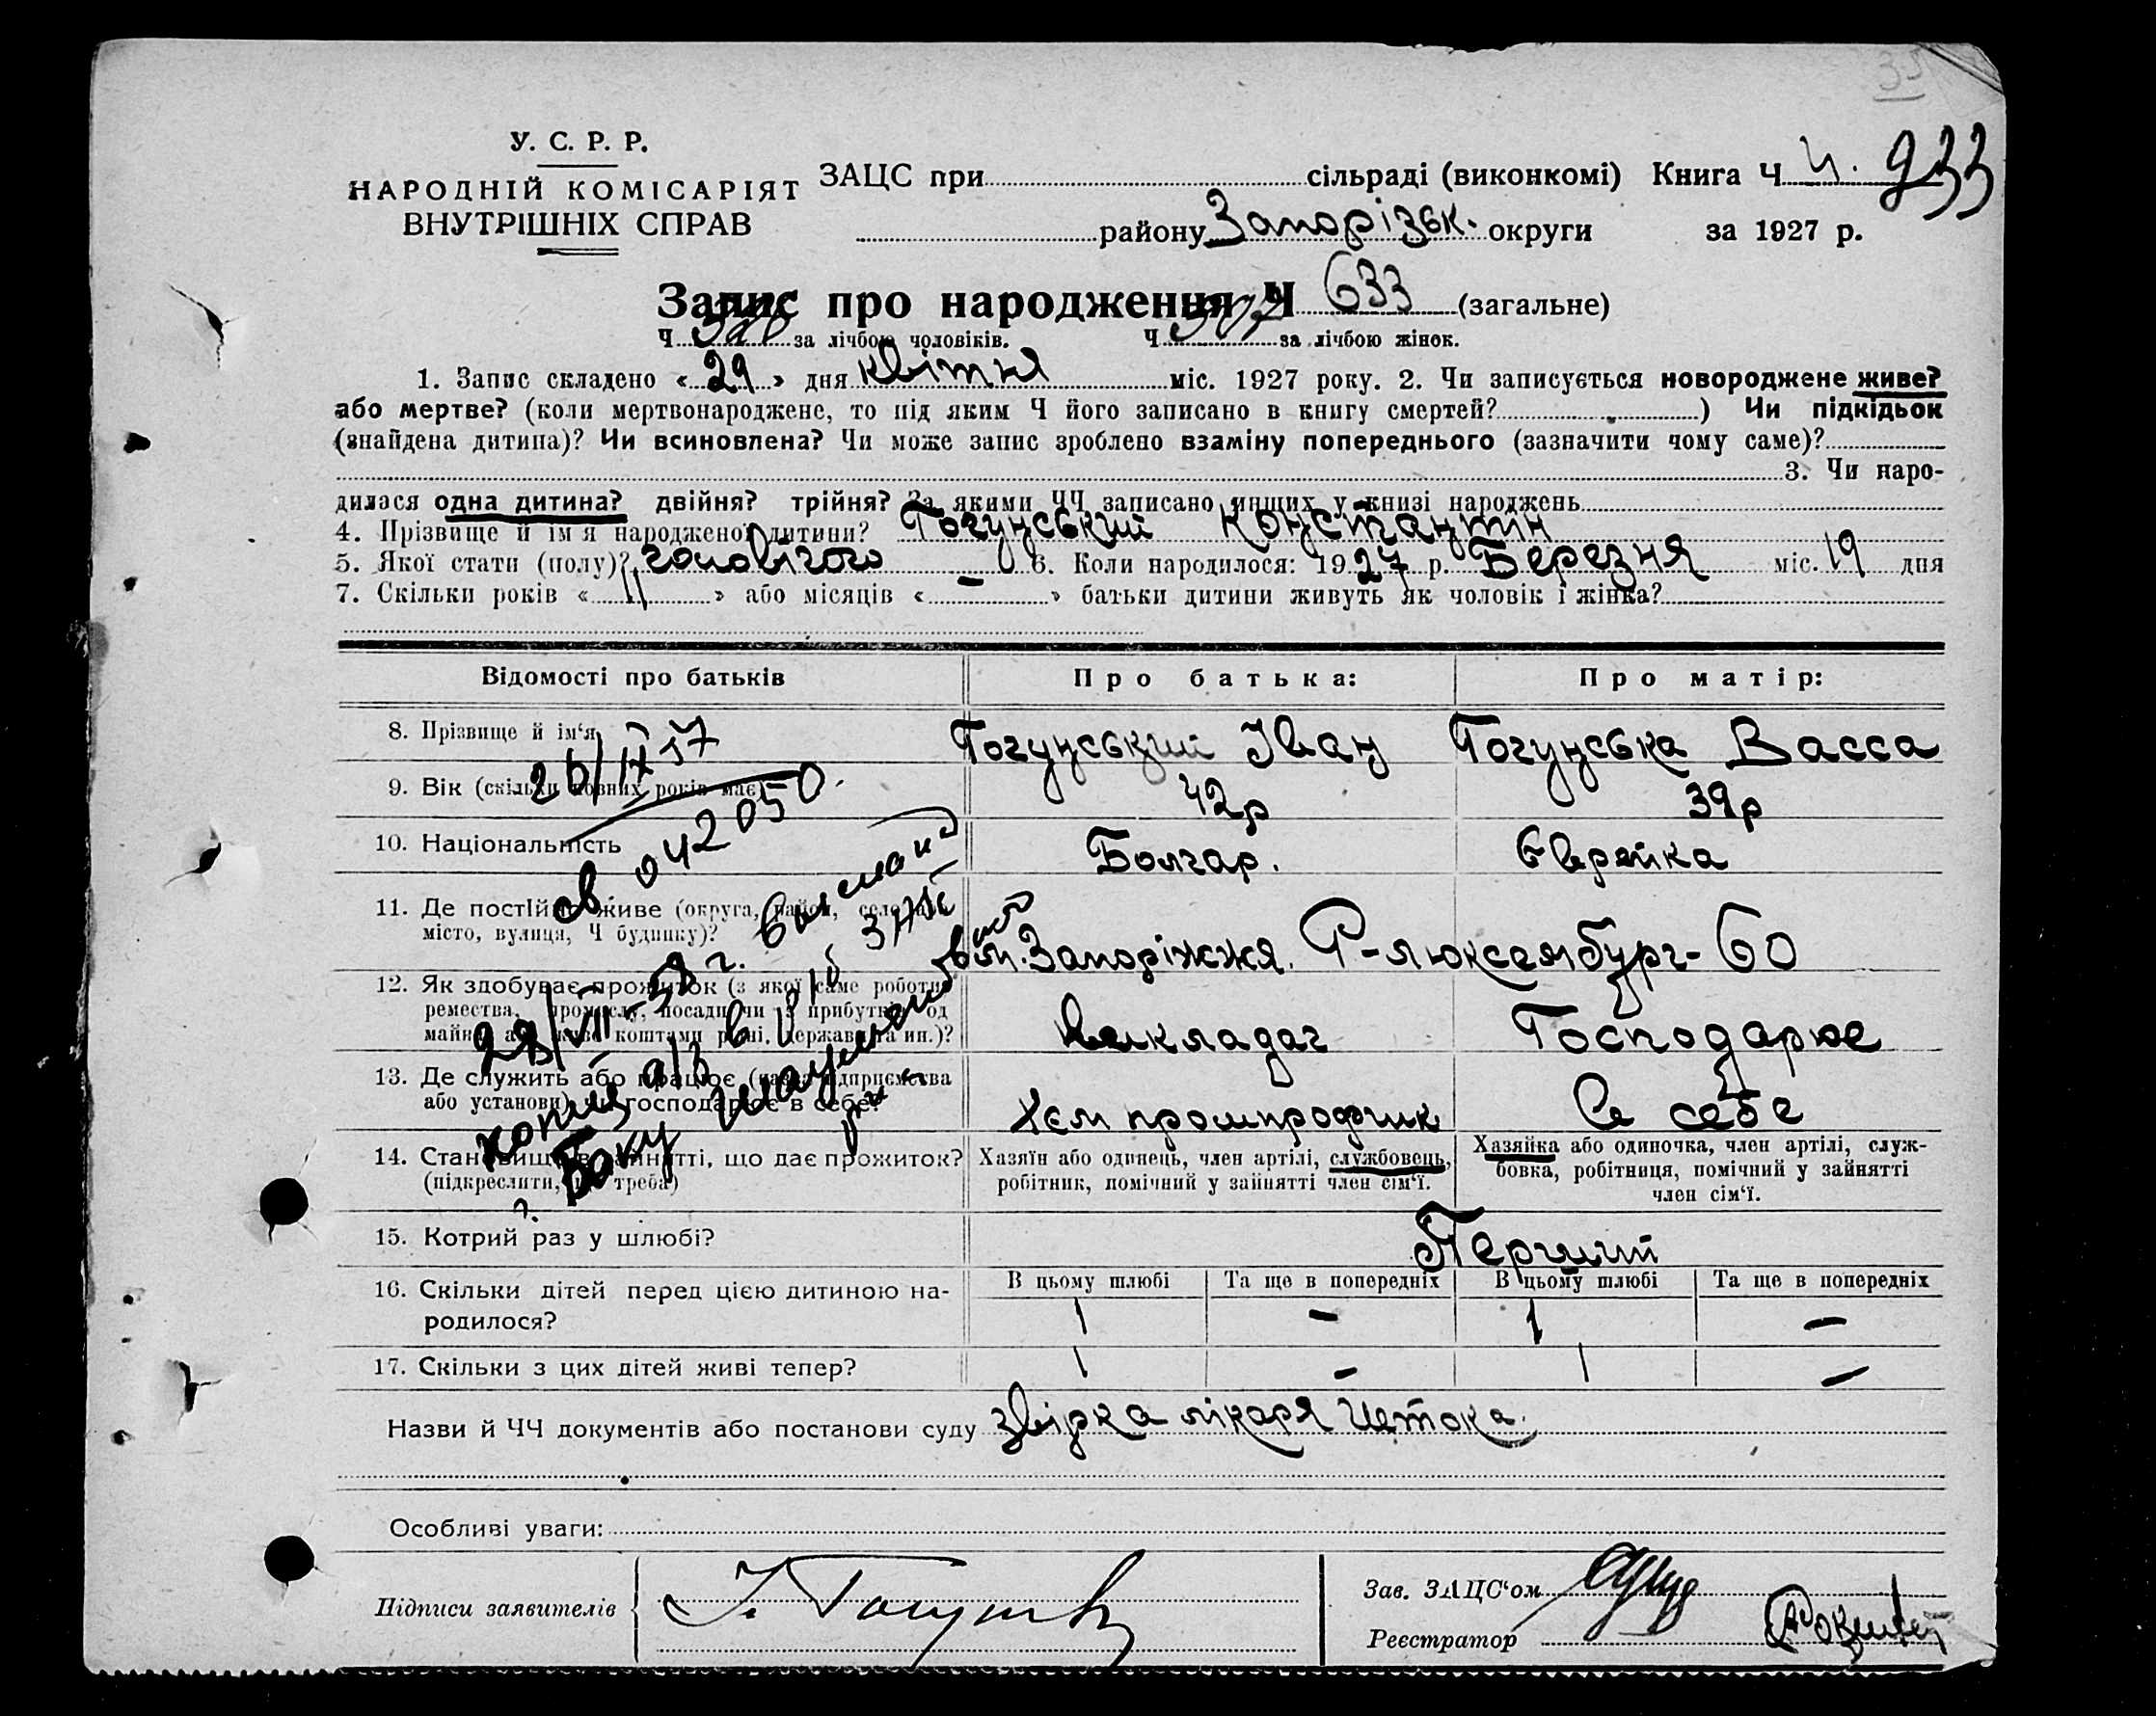 35
У. С. Р. Р.
НАРОДНІЙ КОМІСАРІЯТ
ВНУТРІШНІХ СПРАВ
ЗАЦС при сільраді (виконкомі) Книга Ч 4. 933
району Запорізьк. округи за 1927 р.
Запис про народження Ч 633 (загальне)
Ч 326 за лічбою чоловіків. Ч 307 за лічбою жінок.
1. Запис складено « 29 » дня квітня міс. 1927 року. 2. Чи записується новороджене живе?
або мертве? (коли мертвонароджене, то під яким Ч його записано в книгу смертей? ) Чи підкідьок
(знайдена дитина)? Чи всиновлена? Чи може запис зроблено взаміну попереднього (зазначити чому саме)?
3. Чи наро-
дилася одна дитина? двійня? трійня? За якими ЧЧ записано инших у книзі народжень
4. Прізвище й ім'я народженої дитини? Гогунський Констянтін
5. Якої стати (полу)? чоловічого 6. Коли народилося: 1927 р. Березня міс. 19 дня
7. Скільки років « 11 » або місяців « - » батьки дитини живуть як чоловік і жінка?
Відомості про батьків Про батька: Про матір:
8. Прізвище й ім'я Гогунський Іван Гогунська Васса
26/IX 57
9. Вік (скільки повних років має) 42р 39р
10. Національність Болгар. Єврейка
св. 042050.
11. Де постійно живе (округа, район, село або
місто, вулиця, Ч будинку)? м. Запоріжжя. Р-люксембург-60
12. Як здобуває прожиток (з якої саме роботи,
ремества, промислу, посади чи з прибутків од
майна, або живе коштами рідні, держави та ин.)? Викладач Господарює
13. Де служить або працює (назва підприємства
або установи), чи господарює в себе? Хєм промпрофшк В себе
29/VII-58 г. выслана
копия а/з в ЗАГС
г. Баку
14. Становище в зайнятті, що дає прожиток?
(підкреслити, що треба)
Хазяїн або одинець, член артілі, службовець,
робітник, помічний у зайнятті член сім'ї.
Хазяйка або одиночка, член артілі, служ-
бовка, робітниця, помічний у зайнятті
член сім'ї.
15. Котрий раз у шлюбі? Перший
16. Скільки дітей перед цією дитиною на-
родилося?
В цьому шлюбі Та ще в попередніх В цьому шлюбі Та ще в попередніх
1 - 1 -
17. Скільки з цих дітей живі тепер? 1 - 1 -
Назви й ЧЧ документів або постанови суду звірка лікаря
Особливі уваги:
Підписи заявителів
Зав. ЗАЦС'ом
Реєстратор